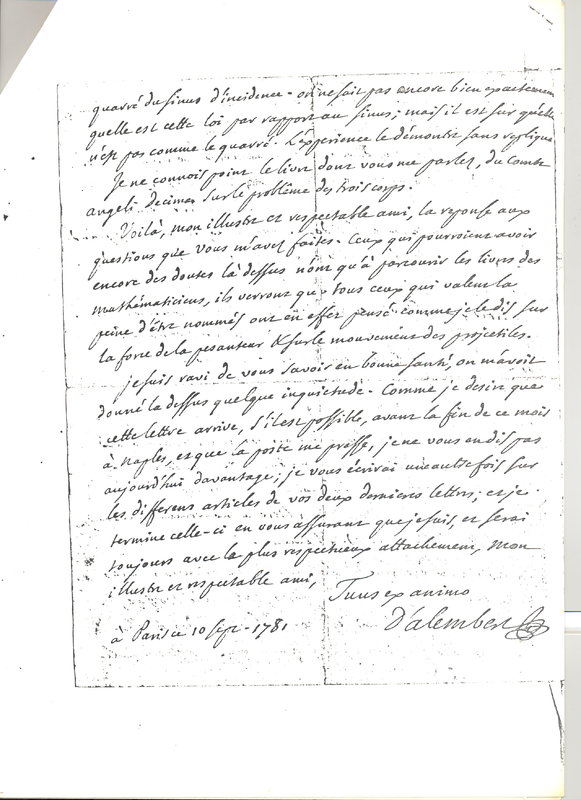 quarré du sinus d'incidence. on ne sait pas encore bien exactement
quelle est cette loi par rapport au sinus; mais il est sûr qu'elle
n'est pas comme le quarré. L'expérience le démontre sans replique.
Je ne connois point le livre dont vous me parlez, du Comte
angeli decimes sur le problême des trois corps.
Voilà, mon illustre et respectable ami, la reponse aux
questions que vous m'avez faites. Ceux qui pourroient avoir
encore des doutes là dessus n'ont qu'à parcourir les livres des
mathématiciens, ils verront que tous ceux qui valent la
peine d'être nommés ont en effet pensé comme je le dis sur
la force de la pesanteur & sur le mouvement des projectiles.
je suis ravi de vous savoir en bonne santé, on m'avoit
donné là dessus quelque inquietude. Comme je desire que
cette lettre arrive, s'il est possible, avant la fin de ce mois
à Naples, et que la poste me presse, je ne vous en dis pas
aujourd'hui davantage; je vous écrirai une autre fois sur
les differens articles de vos deux dernieres lettres; et je
termine celle-ci en vous assurant que je suis, et serai
toujours avec le plus respectueux attachement, mon
illustre et respectable ami,
Tuus ex animo
à Paris ce 10 sept. 1781
D'alembert